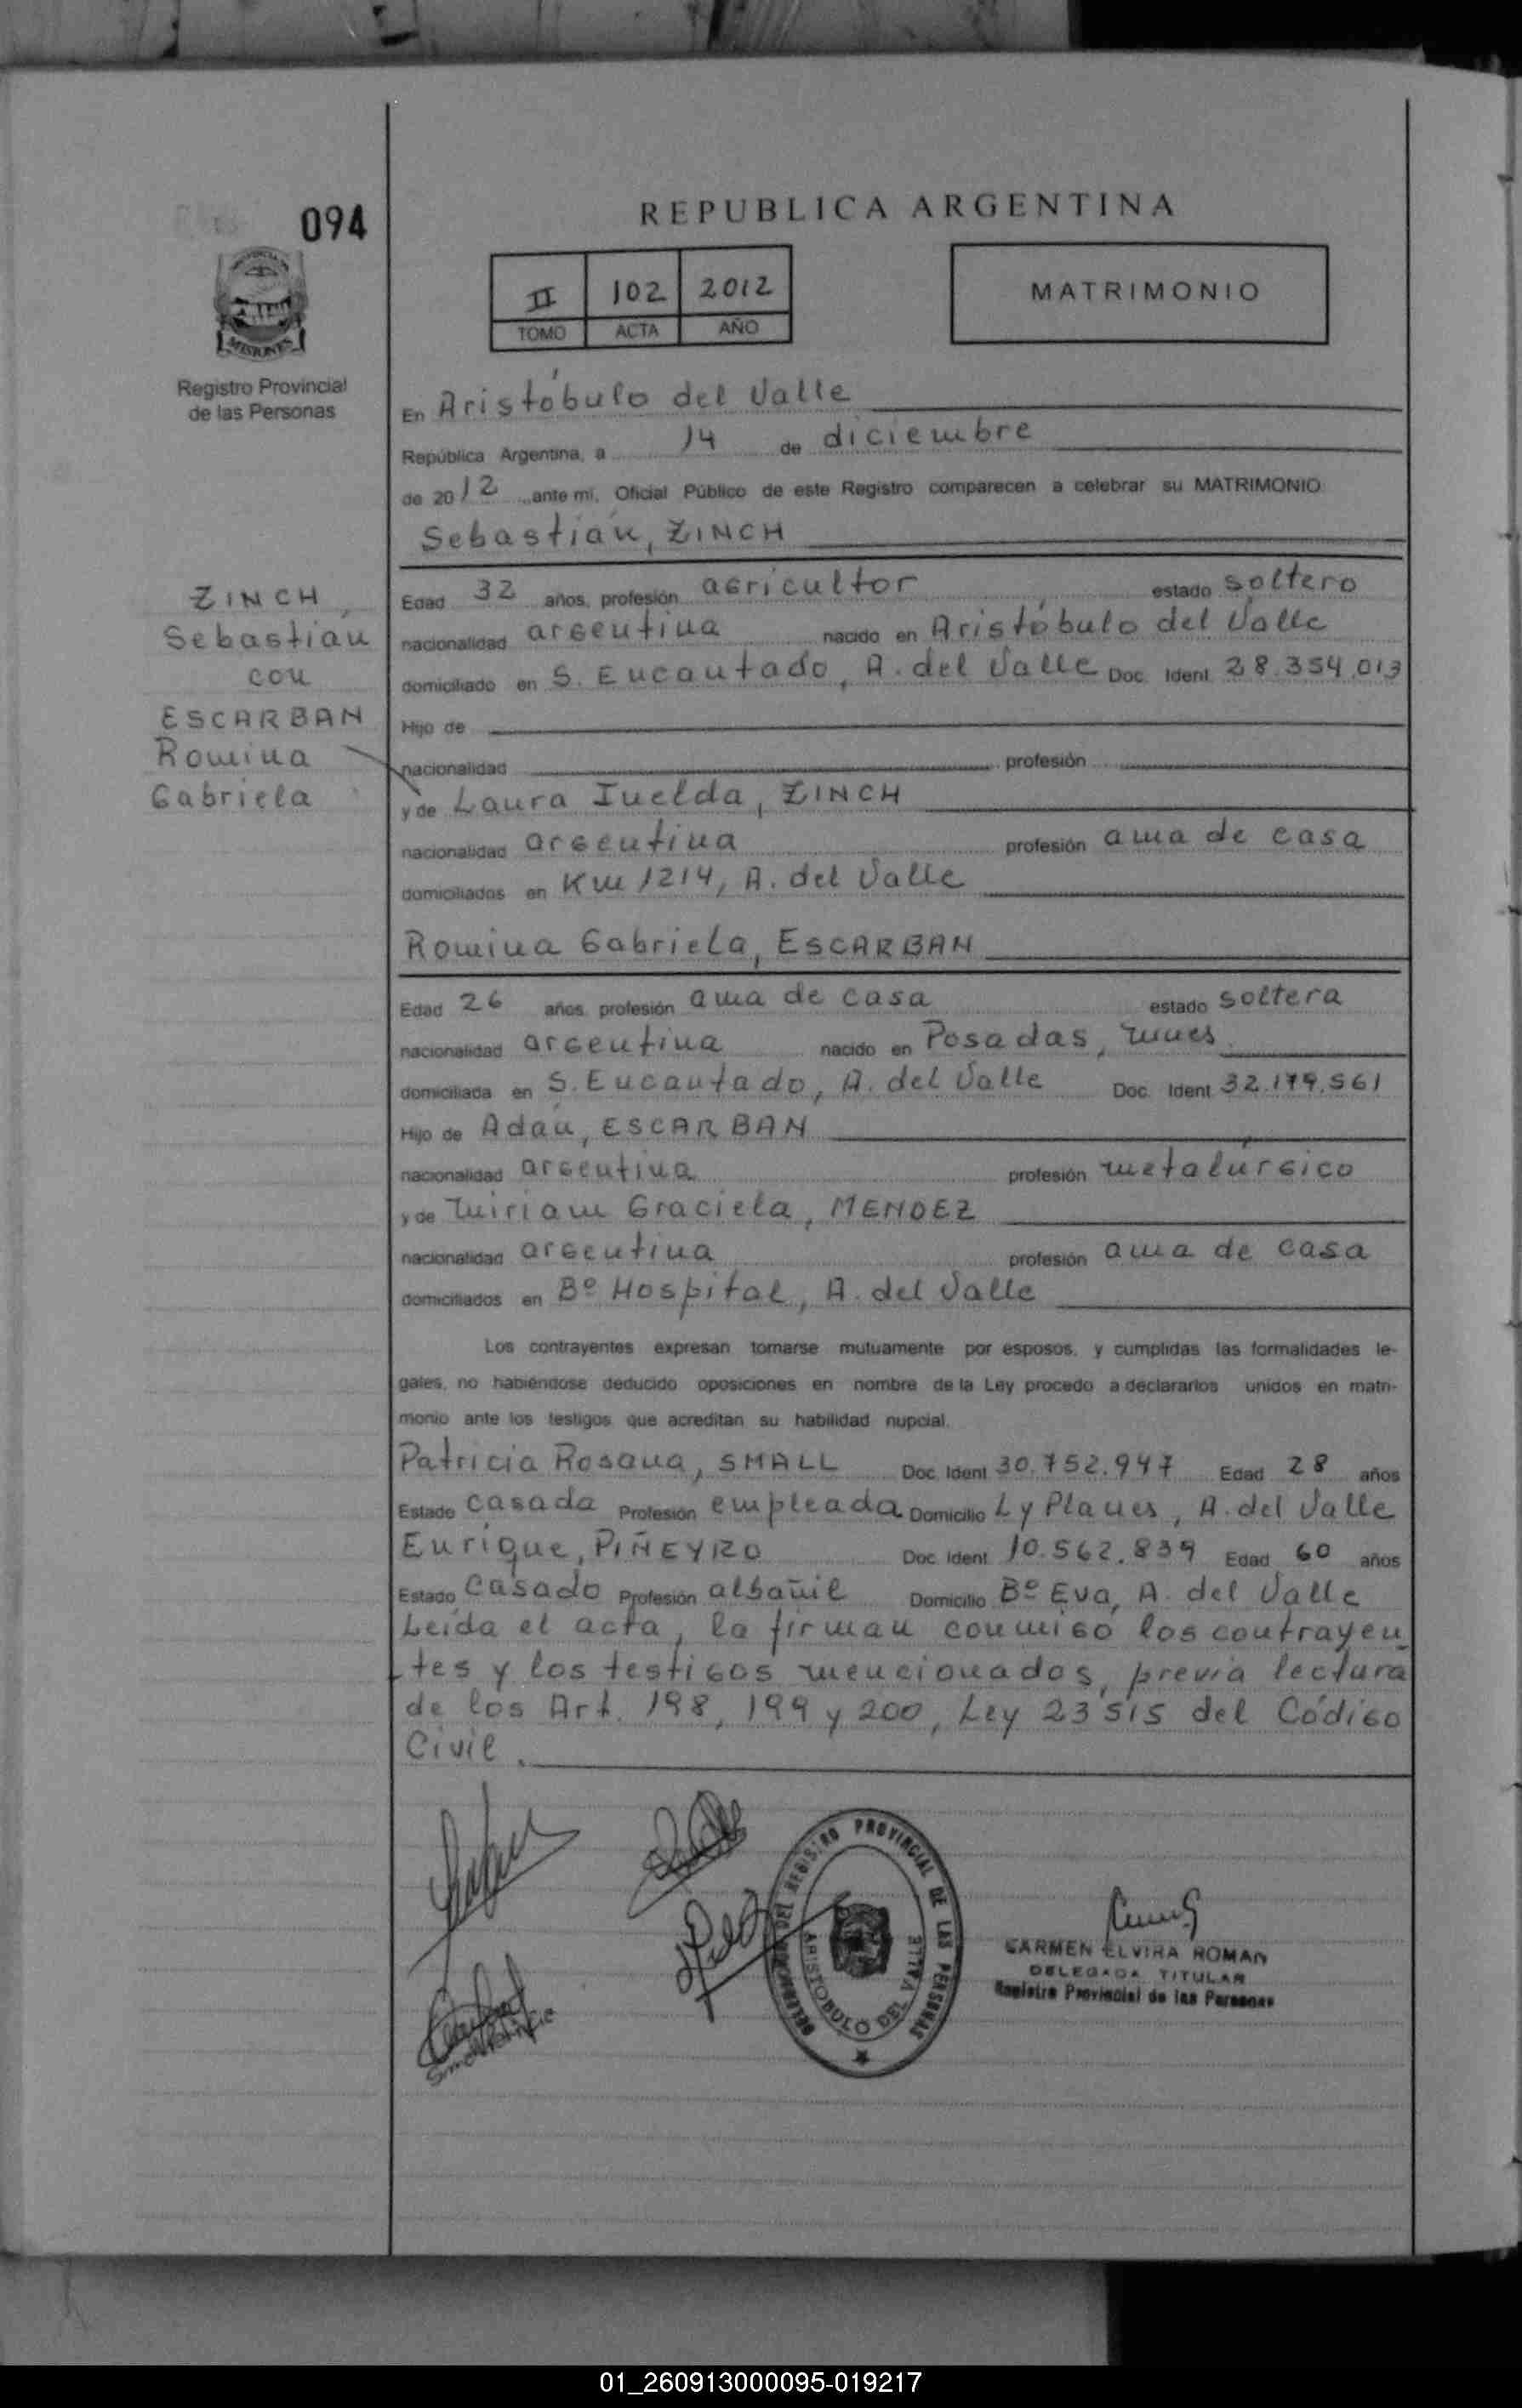 094
REPUBLICA ARGENTINA
II 102 2012
TOMO ACTA AÑO
MATRIMONIO
MISIONES
Registro Provincial
de las Personas
En Aristóbulo del Valle
República Argentina, a 14 de diciembre
de 2012 ante mi, Oficial Público de este Registro comparecen a celebrar su MATRIMONIO
Sebastián, ZINCH
ZINCH,
Sebastián
con
ESCARBAN
Romina
Gabriela
Edad 32 años, profesión agricultor estado soltero
nacionalidad argentina nacido en Aristóbulo del Valle
domiciliado en S. Encantado, A. del Valle Doc. Ident. 28.354.013
Hijo de
nacionalidad profesión
y de Laura Inelda, ZINCH
nacionalidad argentina profesión ama de casa
domiciliados en Km 1214, A. del Valle
Romina Gabriela, ESCARBAN
Edad 26 años, profesión ama de casa estado soltera
nacionalidad argentina nacido en Posadas, Mnes
domiciliada en S. Encantado, A. del Valle Doc. Ident. 32.179.561
Hijo de Adán, ESCARBAN
nacionalidad argentina profesión metalúrgico
y de Miriam Graciela, MENDEZ
nacionalidad argentina profesión ama de casa
domiciliados en Bº Hospital, A. del Valle
Los contrayentes expresan tomarse mutuamente por esposos, y cumplidas las formalidades le-
gales, no habiéndose deducido oposiciones en nombre de la Ley procedo a declararlos unidos en matri-
monio ante los testigos que acreditan su habilidad nupcial.
Patricia Rosana, SMALL Doc. Ident. 30.752.947 Edad 28 años
Estado casada Profesión empleada Domicilio L y Planes, A. del Valle
Enrique, PIÑEYRO Doc. Ident. 10.562.839 Edad 60 años
Estado casado Profesión albañil Domicilio Bº Eva, A. del Valle
Leída el acta, la firman conmigo los contrayen
tes y los testigos mencionados, previa lectura
de los Art. 198, 199 y 200, Ley 23515 del Código
Civil.
REGISTRO PROVINCIAL DE LAS PERSONAS
ARISTOBULO DEL VALLE
CARMEN ELVIRA ROMAN
DELEGADA TITULAR
Registro Provincial de las Personas
01_260913000095-019217